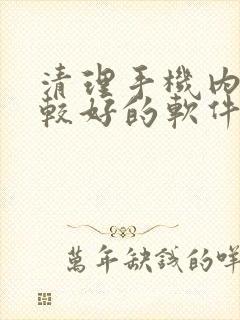 清理手機內
較好的軟件
萬年缺錢的咩